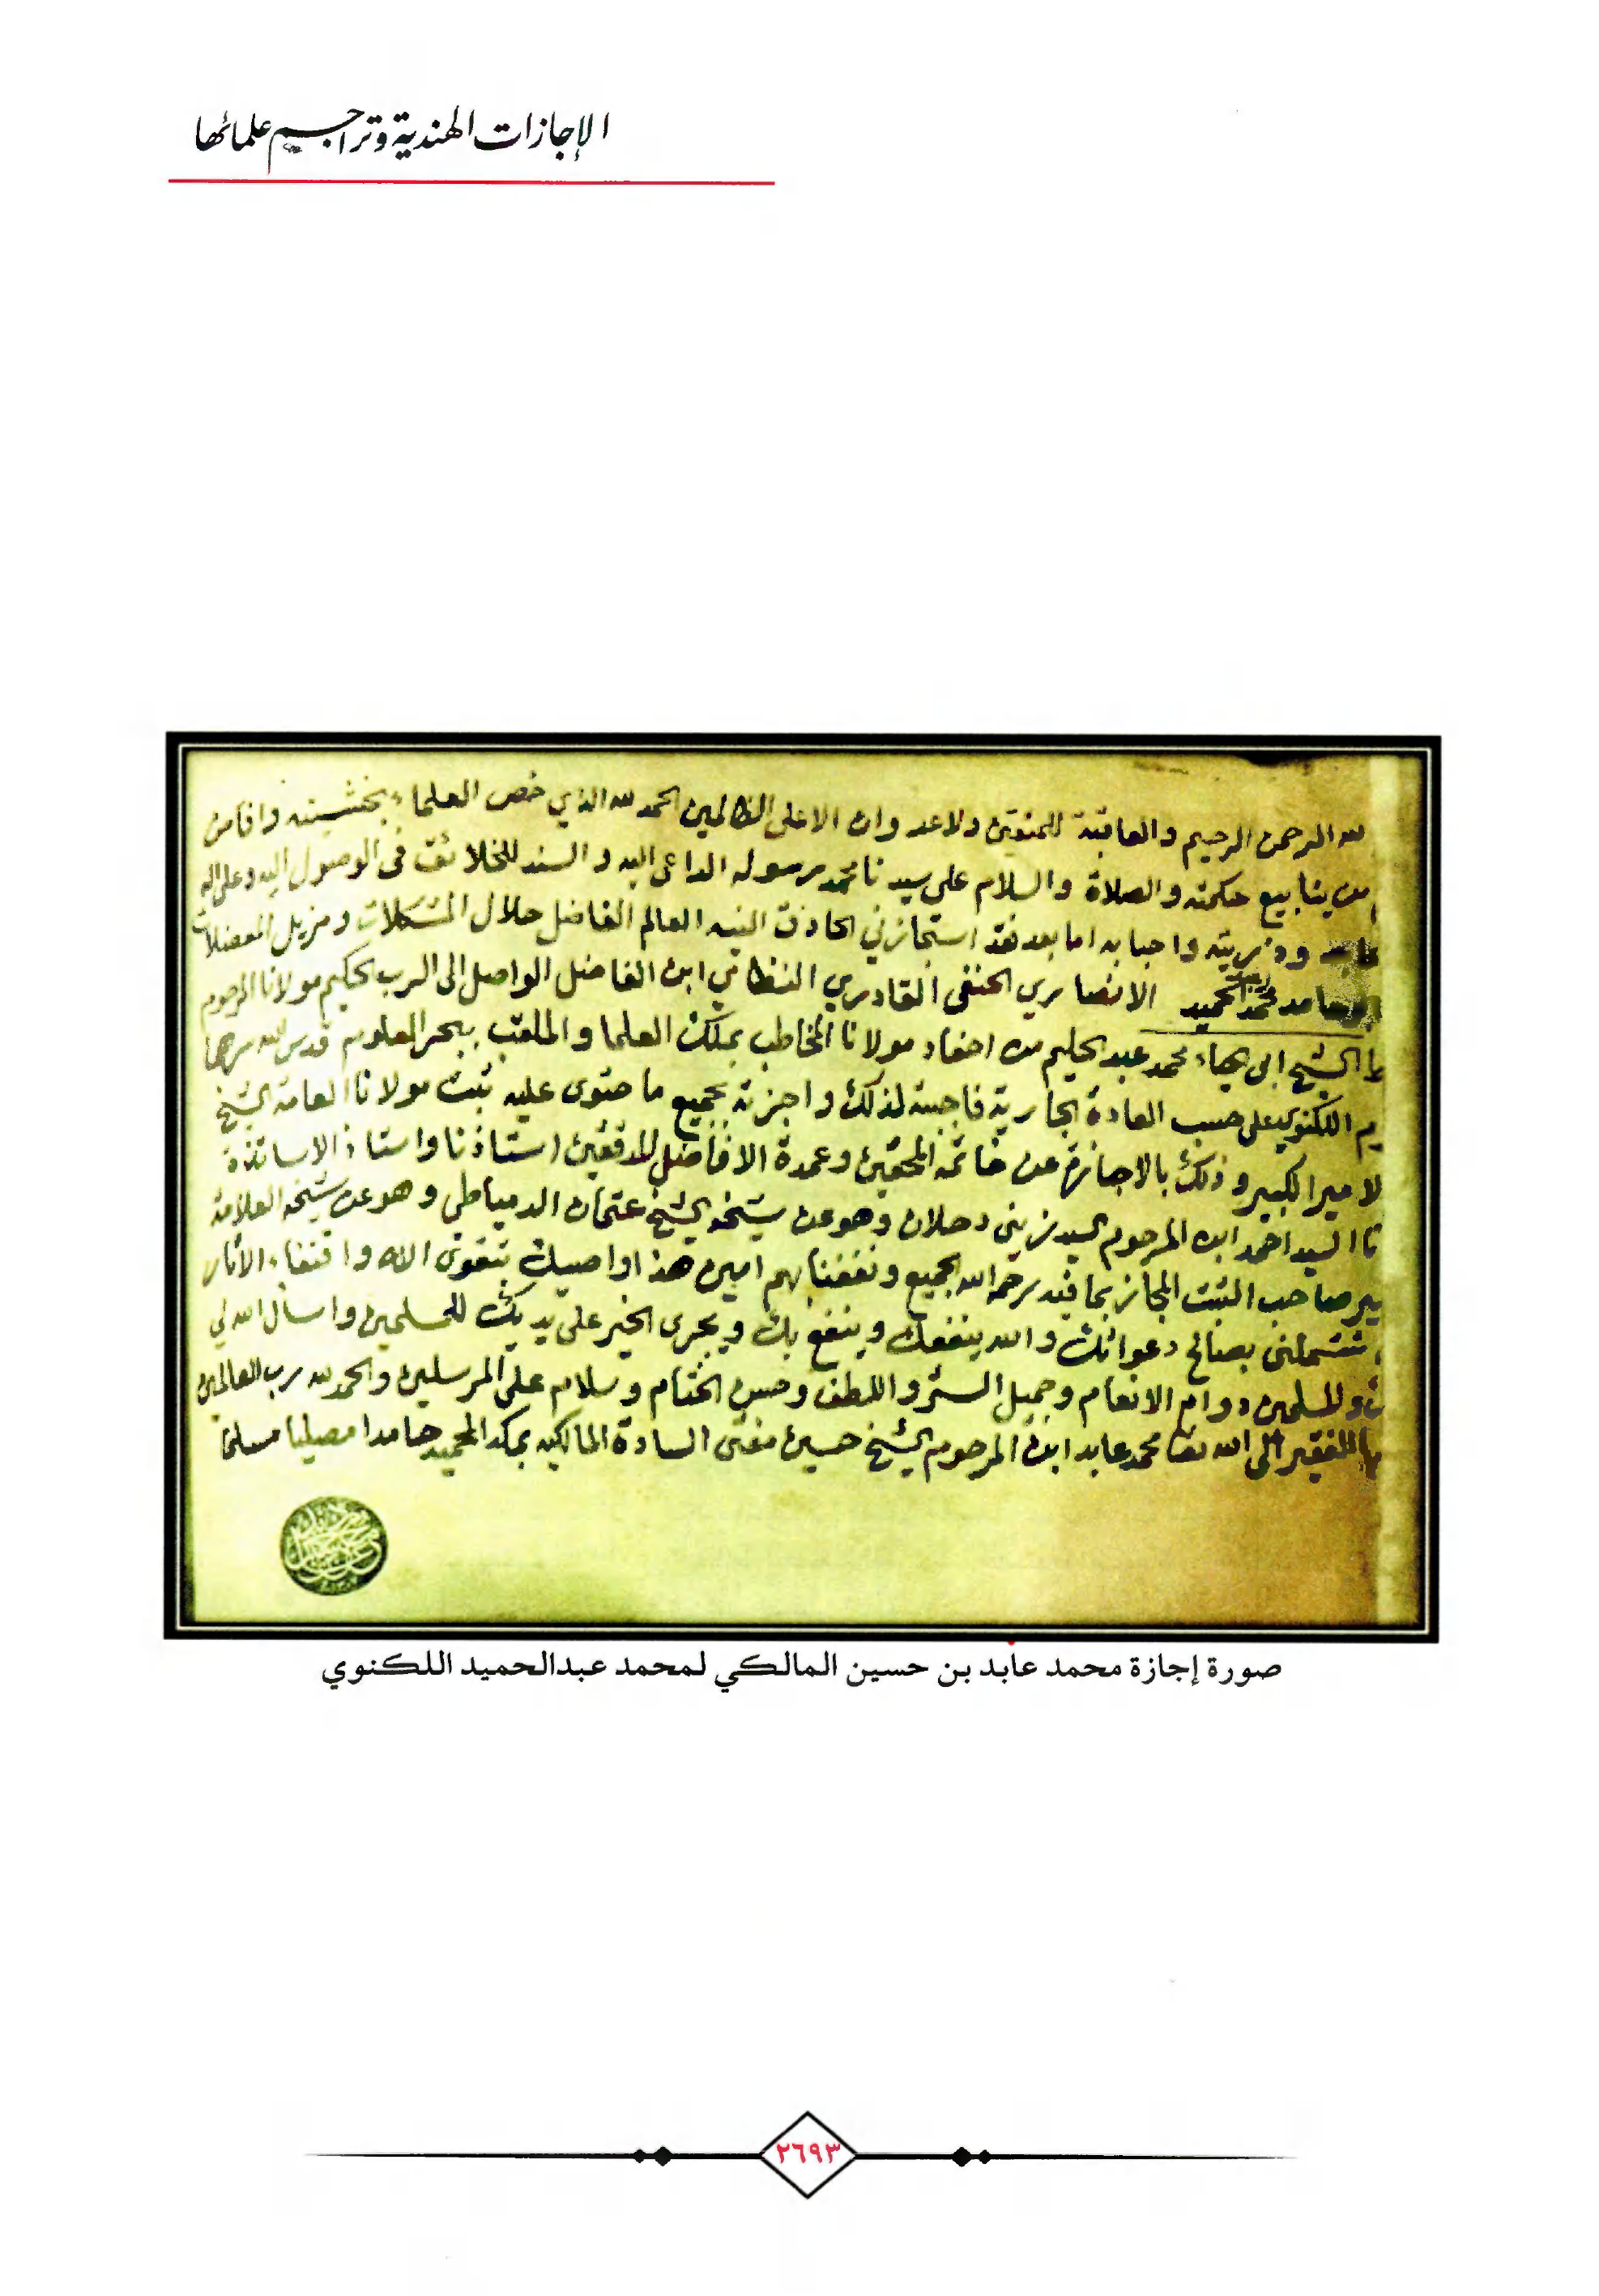 الإجازات الهندية وتراجم علمائها
لله الرحمن الرحيم والعاقبة للمتقين ولا عدوان الا على الظالمين الحمد لله الذي خص العلماء بخشيته وافاض
من ينابيع حكمته والصلاة والسلام على سيدنا محمد رسوله الداعى اليه والسند للخلائق فى الوصول اليه وعلى اله
وذريته واحبابه اما بعد فقد استجازني الحاذق النبيه العالم الفاضل حلال المشكلات ومزيل المعضلات
محمد عبد الحميد الانصاري الحنفى القادري النظامي ابن الفاضل الواصل الى الرب الحكيم مولانا المرحوم
الشيخ ابى الحياء محمد عبد الحليم من احفاد مولانا المخاطب بملك العلما والملقب ببحر العلوم قدس الله سرهما
يم اللكنوي على حسب العادة الجارية فاجبته لذلك واجزته بجميع ما حتوى عليه ثبت مولانا العامة الشيخ
لامير الكبير وذلك بالاجازة عن خاتمة المحققين وعمدة الافاضل المدققين استاذنا واستاذ الاساتذة
نا السيد احمد ابن المرحوم السيد زيني دحلان وهو عن شيخه الشيخ عثمان الدمياطي وهو عن شيخه العلامة
ير صاحب الثبت المجاز بما فيه رحم الله الجميع ونفعنا بهم امين هذا واوصيك بتقوى الاله واقتفاء الاثار
تشملنى بصالح دعواتك والله ينفعك وينفع بك ويجرى الخير على يديك للمسلمين واسال الله لي
وللمسلمين دوام الانعام وجميل الستر واللطف وحسن الختام وسلام على المرسلين والحمد لله رب العالمين
الفقير الى الله تعا محمد عابد ابن المرحوم الشيخ حسين مفتى السادة المالكيه بمكة المحميه حامدا مصليا مسلما
صورة إجازة محمد عابد بن حسين المالكي لمحمد عبدالحميد اللكنوي
٢٦٩٣